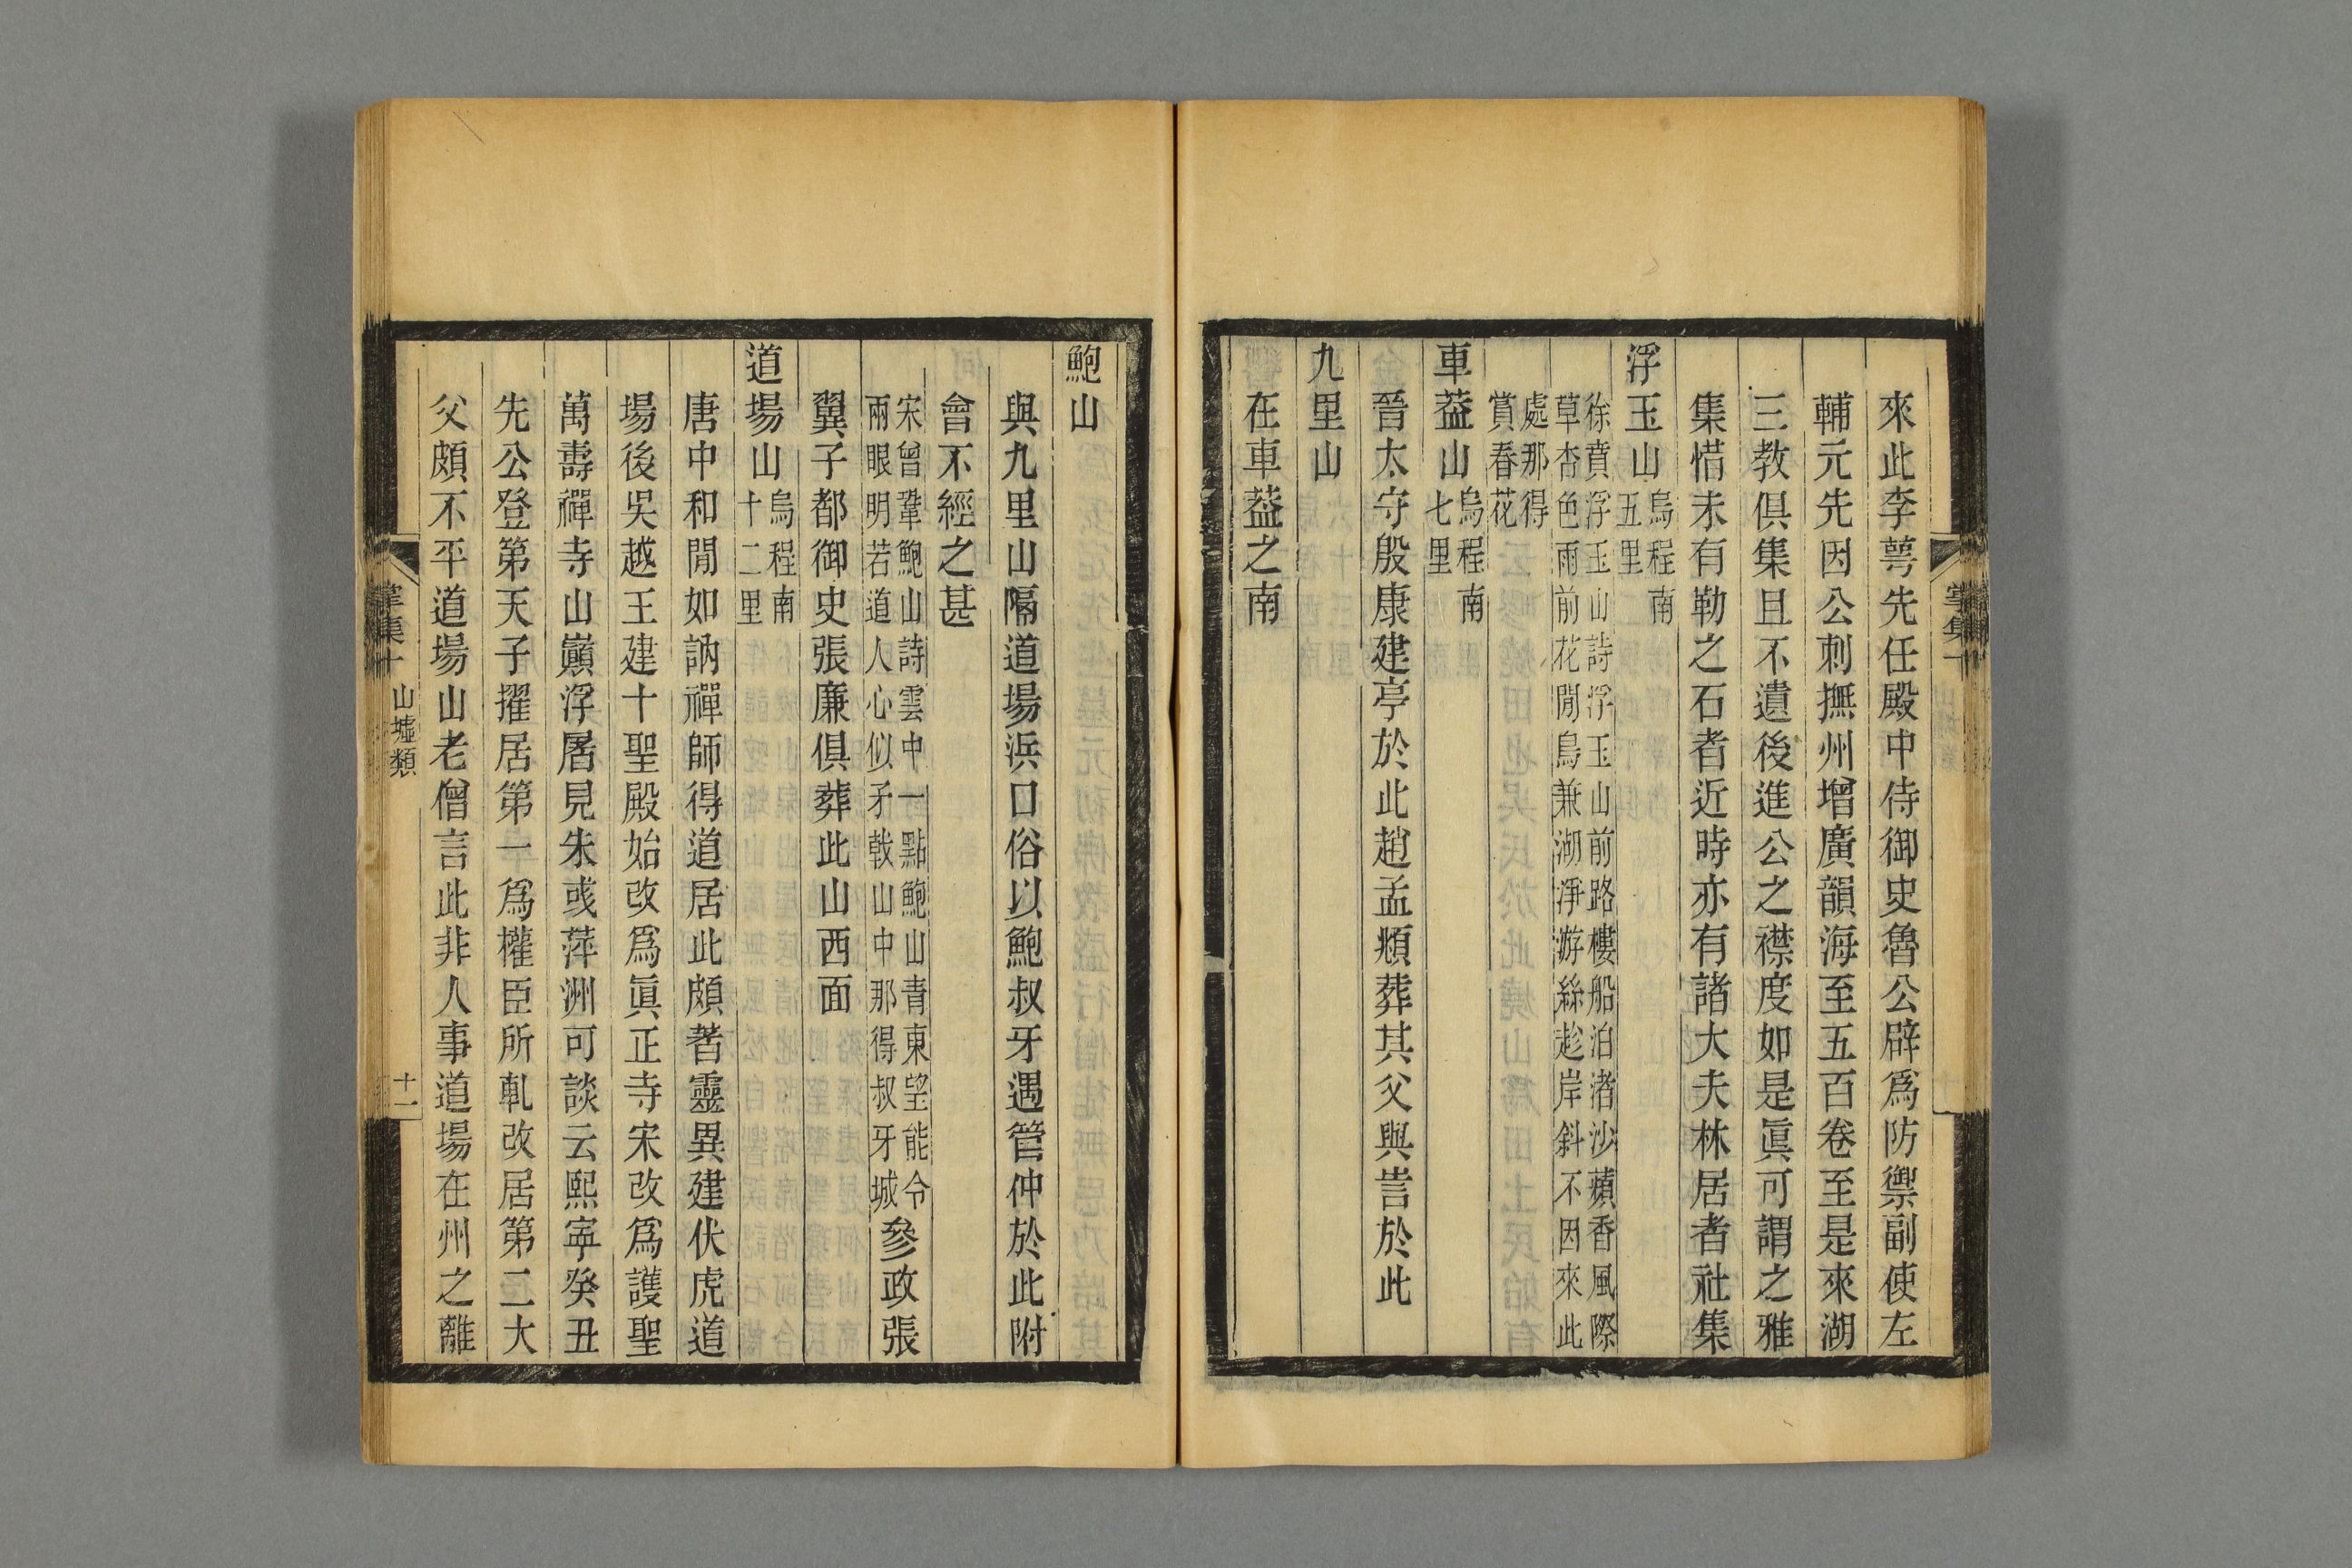 來此李萼先任殿中侍御史魯公辟爲防禦副使左
輔元先因公刺撫州增廣韻海至五百卷至是來湖
三教俱集且不遺後進公之襟度如是眞可謂之雅
集惜未有勒之石者近時亦有諸大夫林居者社集
浮玉山烏程南五里
徐賁浮玉山詩浮玉山前路樓船泊渚沙蘋香風際
草杏色雨前花閒鳥兼湖淨游絲趁岸斜不因來此
處那得
賞春花
車葢山烏程南七里
晉太守殷康建亭於此趙孟頫葬其父與訔於此
九里山
在車葢之南
鮑山
與九里山隔道場浜口俗以鮑叔牙遇管仲於此附
會不經之甚
宋曾鞏鮑山詩雲中一點鮑山青東望能令
兩眼明若道人心似矛戟山中那得叔牙城
參政張
翼子都御史張廉俱葬此山西面
道場山烏程南十二里
唐中和閒如訥禪師得道居此頗著靈異建伏虎道
場後吳越王建十聖殿始改爲眞正寺宋改爲護聖
萬壽禪寺山巔浮屠見朱彧萍洲可談云熙寧癸丑
先公登第天子擢居第一爲權臣所軋改居第二大
父頗不平道場山老僧言此非人事道場在州之離
掌集十
山墟類
十一